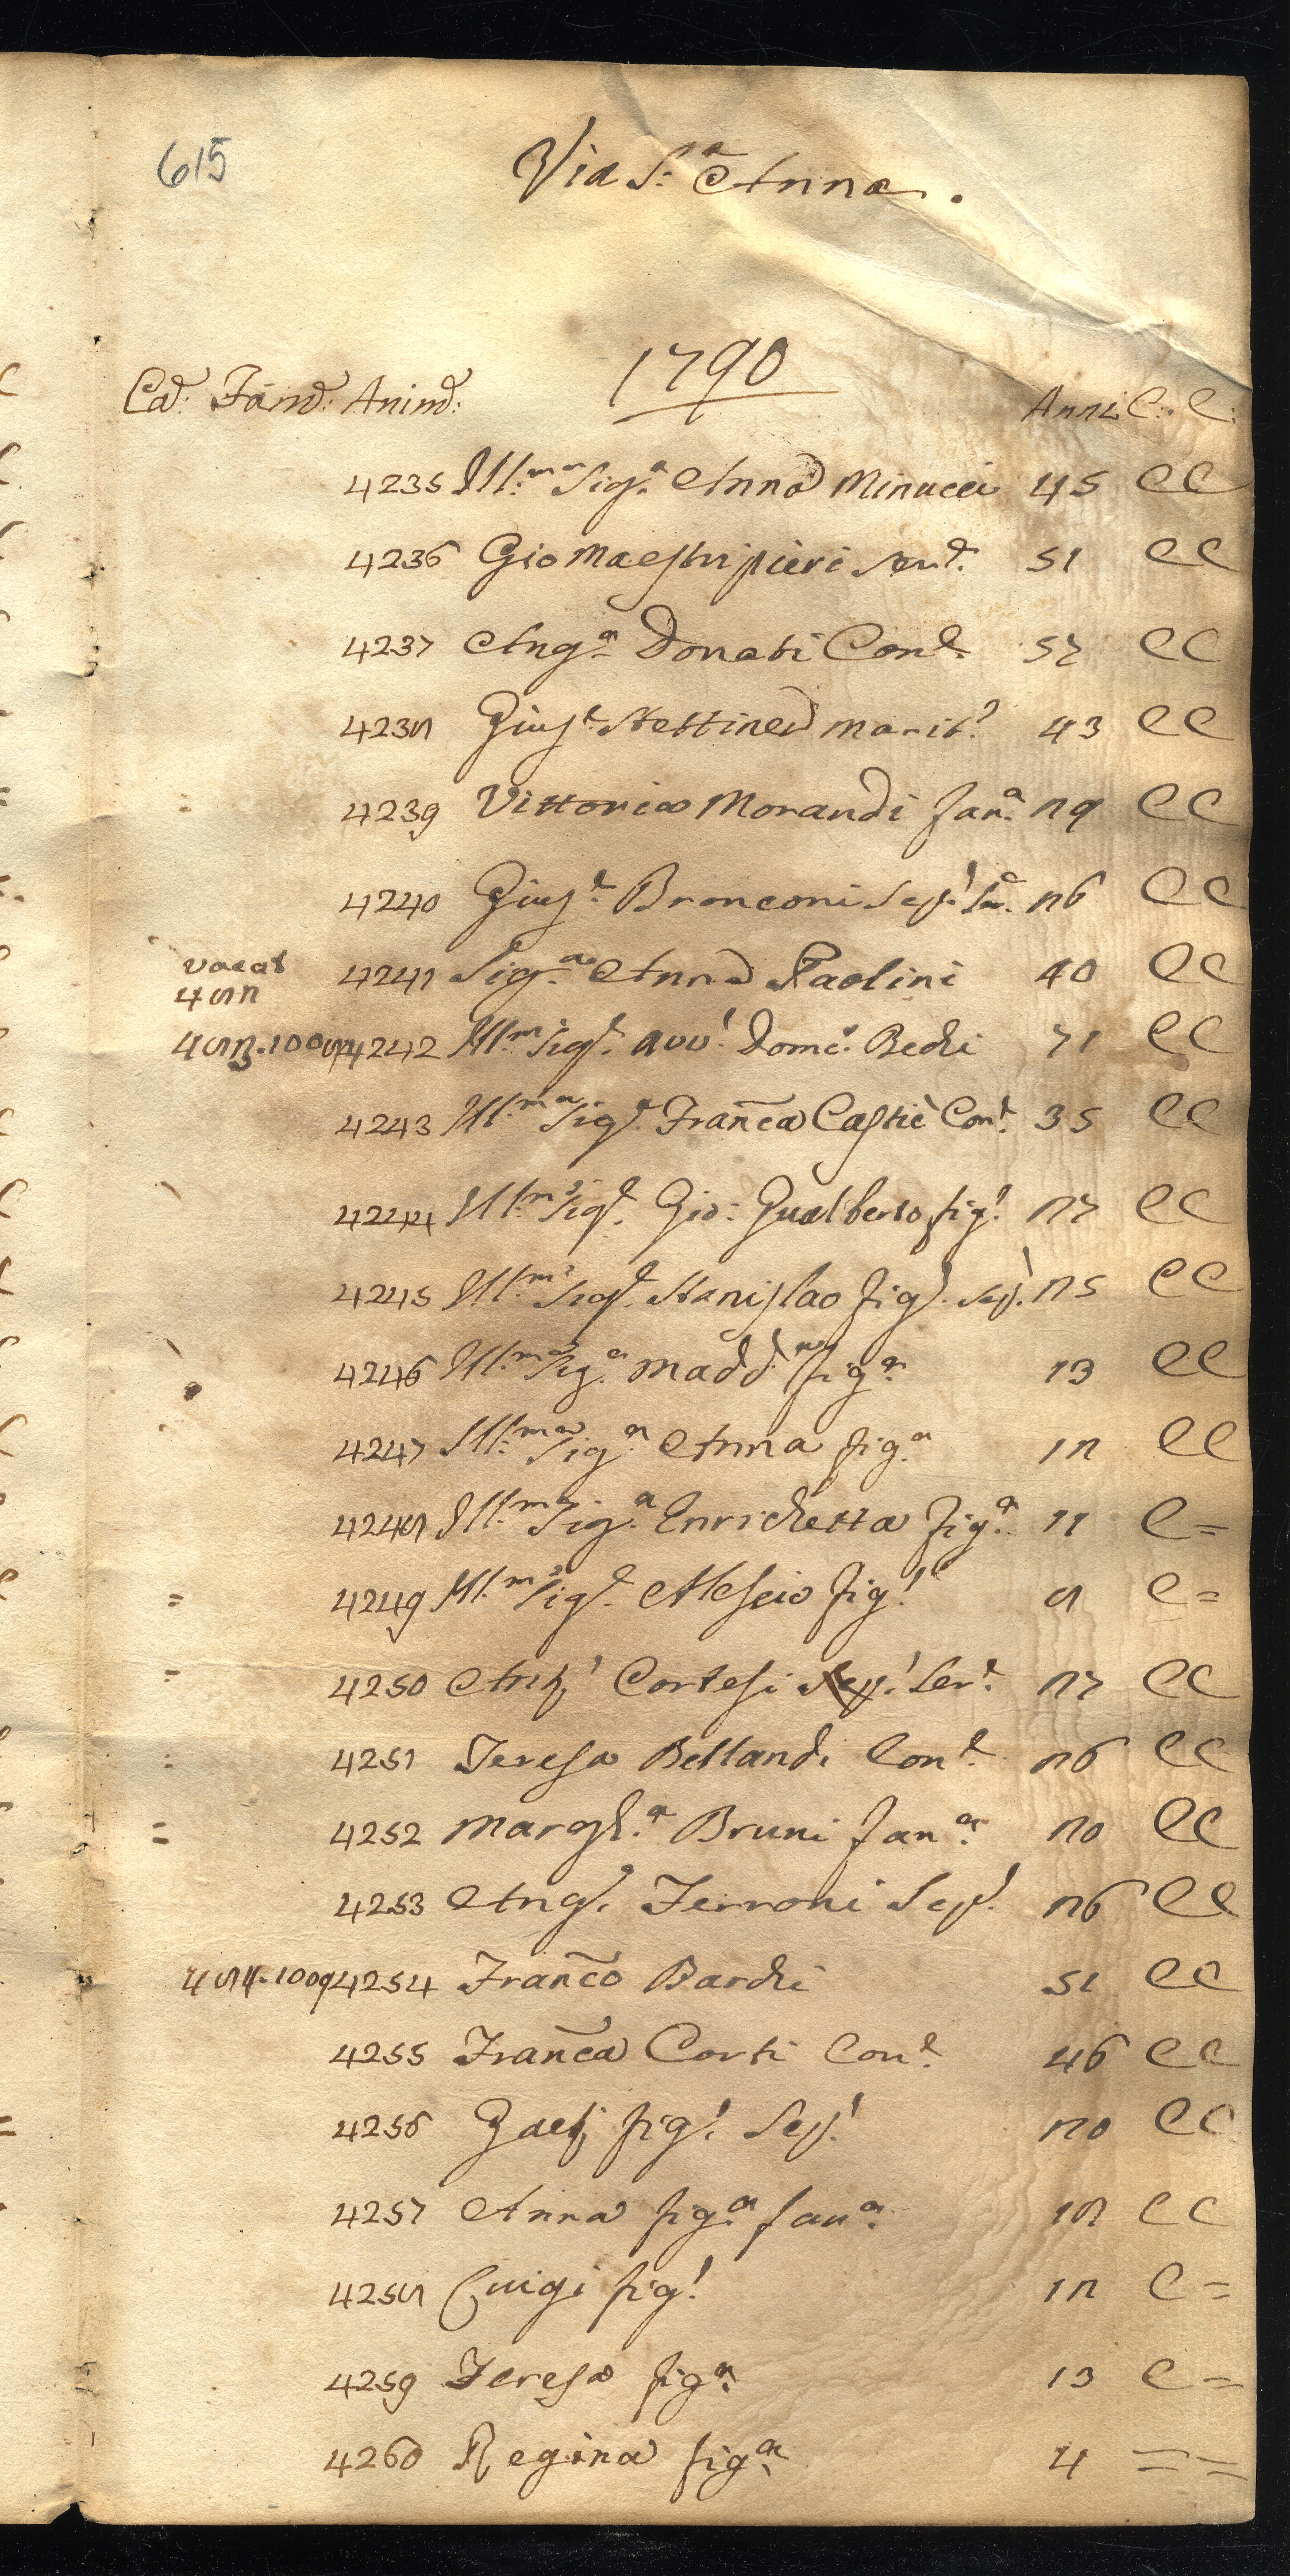 615
Via S.ª Anna.
1790
Cã: Fam̃: Anim̃: Anni C: C:
4235 Ill:ma Sig.ª Anna Minucci 45 CC
4236 Gio Maestripieri serv.e 51 CC
4237 Ang.ª Donati Con.e 57 CC
4238 Gius.e Stettined marit.o 43 CC
4239 Vittoria Morandi fan.ª 29 CC
4240 Gius.e Bronconi Sep.l Se.e 26 CC
vacat
482
4241 Sig.ra Anna Paolini 40 CC
483. 1008 4242 Ill.mo Sig.e Avv.o Dom.co Bechi 71 CC
4243 Ill.ma Sig.ª Franc̃a Castiè Con.e 35 CC
4244 Ill.mo Sig.e Gio: Gualberto fig.o 27 CC
4245 Ill.mo Sig.e Stanislao fig.o Sep.l 25 CC
4246 Ill.ma Sig.ª Madd.na fig.ª 13 CC
4247 Ill.ma Sig.ª Anna fig.ª 12 CC
4248 Ill.ma Sig.ª Enrichetta fig.ª 11 C=
= 4249 Ill.mo Sig.e Alesio fig.o 8 C=
= 4250 Ant.o Cortesi Sep.l Ser.e 27 CC
4251 Teresa Bellandi Con.e 26 CC
= 4252 Margh.ª Bruni fan.ª 20 CC
4253 Ang.o Ferroni Sep.l 26 CC
484. 1009 4254 Franc̃o Bardi 51 CC
4255 Franc̃a Corti Con.e 46 CC
4256 Gaet.o fig.o Sep.l 20 CC
4257 Anna fig.ª fan.ª 18 CC
4258 Luigi fig.o 12 C=
4259 Teresa fig.ª 13 C=
4260 Regina fig.ª 4 ==